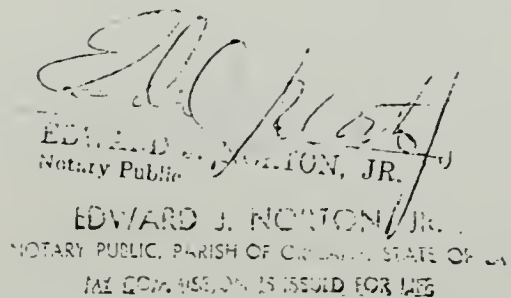 EDWARD J. NORTON, JR.
Notary Public
EDWARD J. NORTON, JR.
NOTARY PUBLIC, PARISH OF ORLEANS, STATE OF LA
MY COMMISSION IS ISSUED FOR LIFE